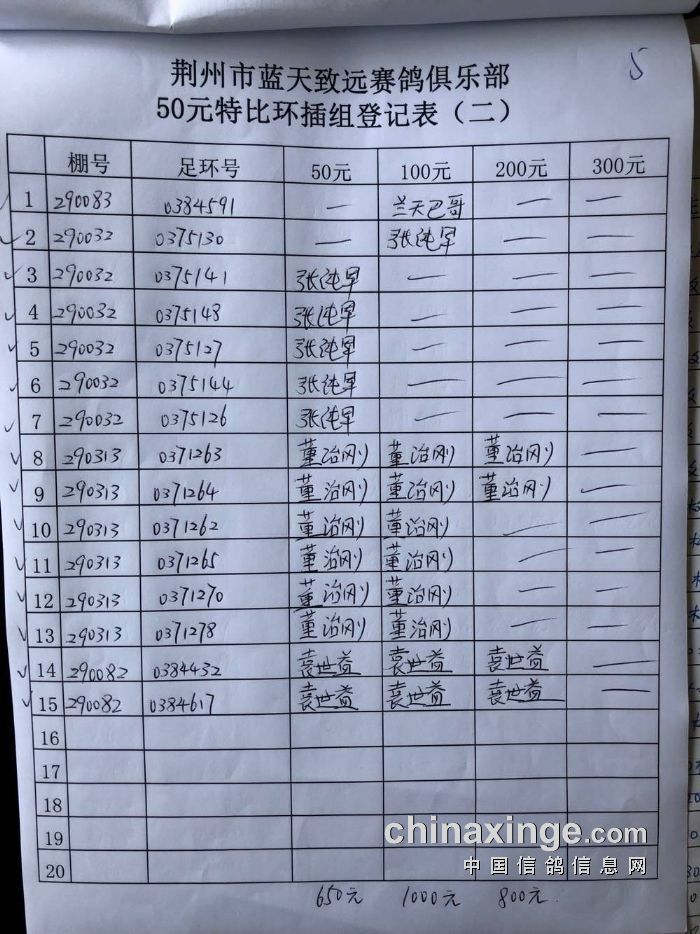 5
荆州市蓝天致远赛鸽俱乐部
50元特比环插组登记表（二）
棚号 足环号 50元 100元 200元 300元
1 290083 0384591 — 兰天巴哥 — —
2 290032 0375130 — 张纯早 — —
3 290032 0375141 张纯早 — — —
4 290032 0375148 张纯早 — — —
5 290032 0375127 张纯早 — — —
6 290032 0375144 张纯早 — — —
7 290032 0375126 张纯早 — — —
8 290313 0371263 董治刚 董治刚 董治刚 —
9 290313 0371264 董治刚 董治刚 董治刚 —
10 290313 0371262 董治刚 董治刚 — —
11 290313 0371265 董治刚 董治刚 — —
12 290313 0371270 董治刚 董治刚 — —
13 290313 0371278 董治刚 董治刚 — —
14 290082 0384432 袁世益 袁世益 袁世益 —
15 290082 0384617 袁世益 袁世益 袁世益 —
16
17
18
19
20
650元 1000元 800元
chinaxinge.com
中国信鸽信息网